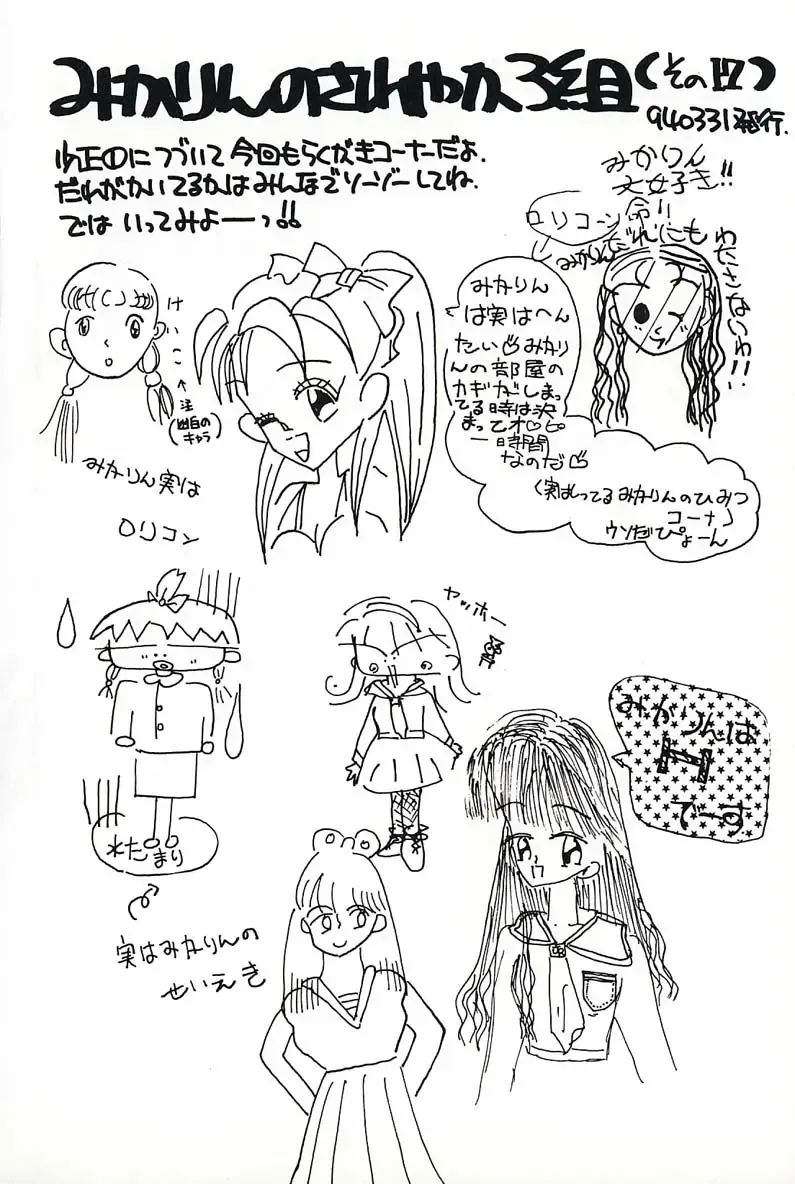 みかりんのさわやか3組(その17)
940331発行.
お正月につづいて今回もらくがきコーナーだよ.
だれがかいてるかはみんなでソーゾーしてね.
では いってみよーーっ!!
みかりん
大好き!!
命!!
ロリコーン
みかりんだれにも
わたさないわ!!
けいこ
↑
注
(幽白の
キャラ)
みかりん
は実はへん
たい みかり
んの部屋の
カギがしまっ
てる時は決
まってオ○ピー
一時間
なのだ
(実はしってるみかりんのひみつ
コーナー)
ウソだぴょーん
みかりん実は
ロリコン
ヤッホー
みかりんは
H
でーす
水たまり
実はみかりんの
せいえき